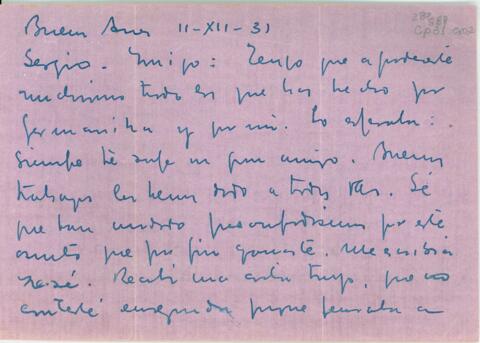 Buenos Aires 11-XII-31
Sergio. Amigo: Tengo que agradecerte
muchísimo todo lo que has hecho por
Germanita y por mí. Lo esperaba:
siempre te supe un gran amigo. Buenos
trabajos les hemos dado a todos Vds. Sé
que han andado preocupadísimos por este
asunto que por fin ganaste. Me escribía
José. Recibí una carta tuya, pero no
contesté enseguida porque pensaba a